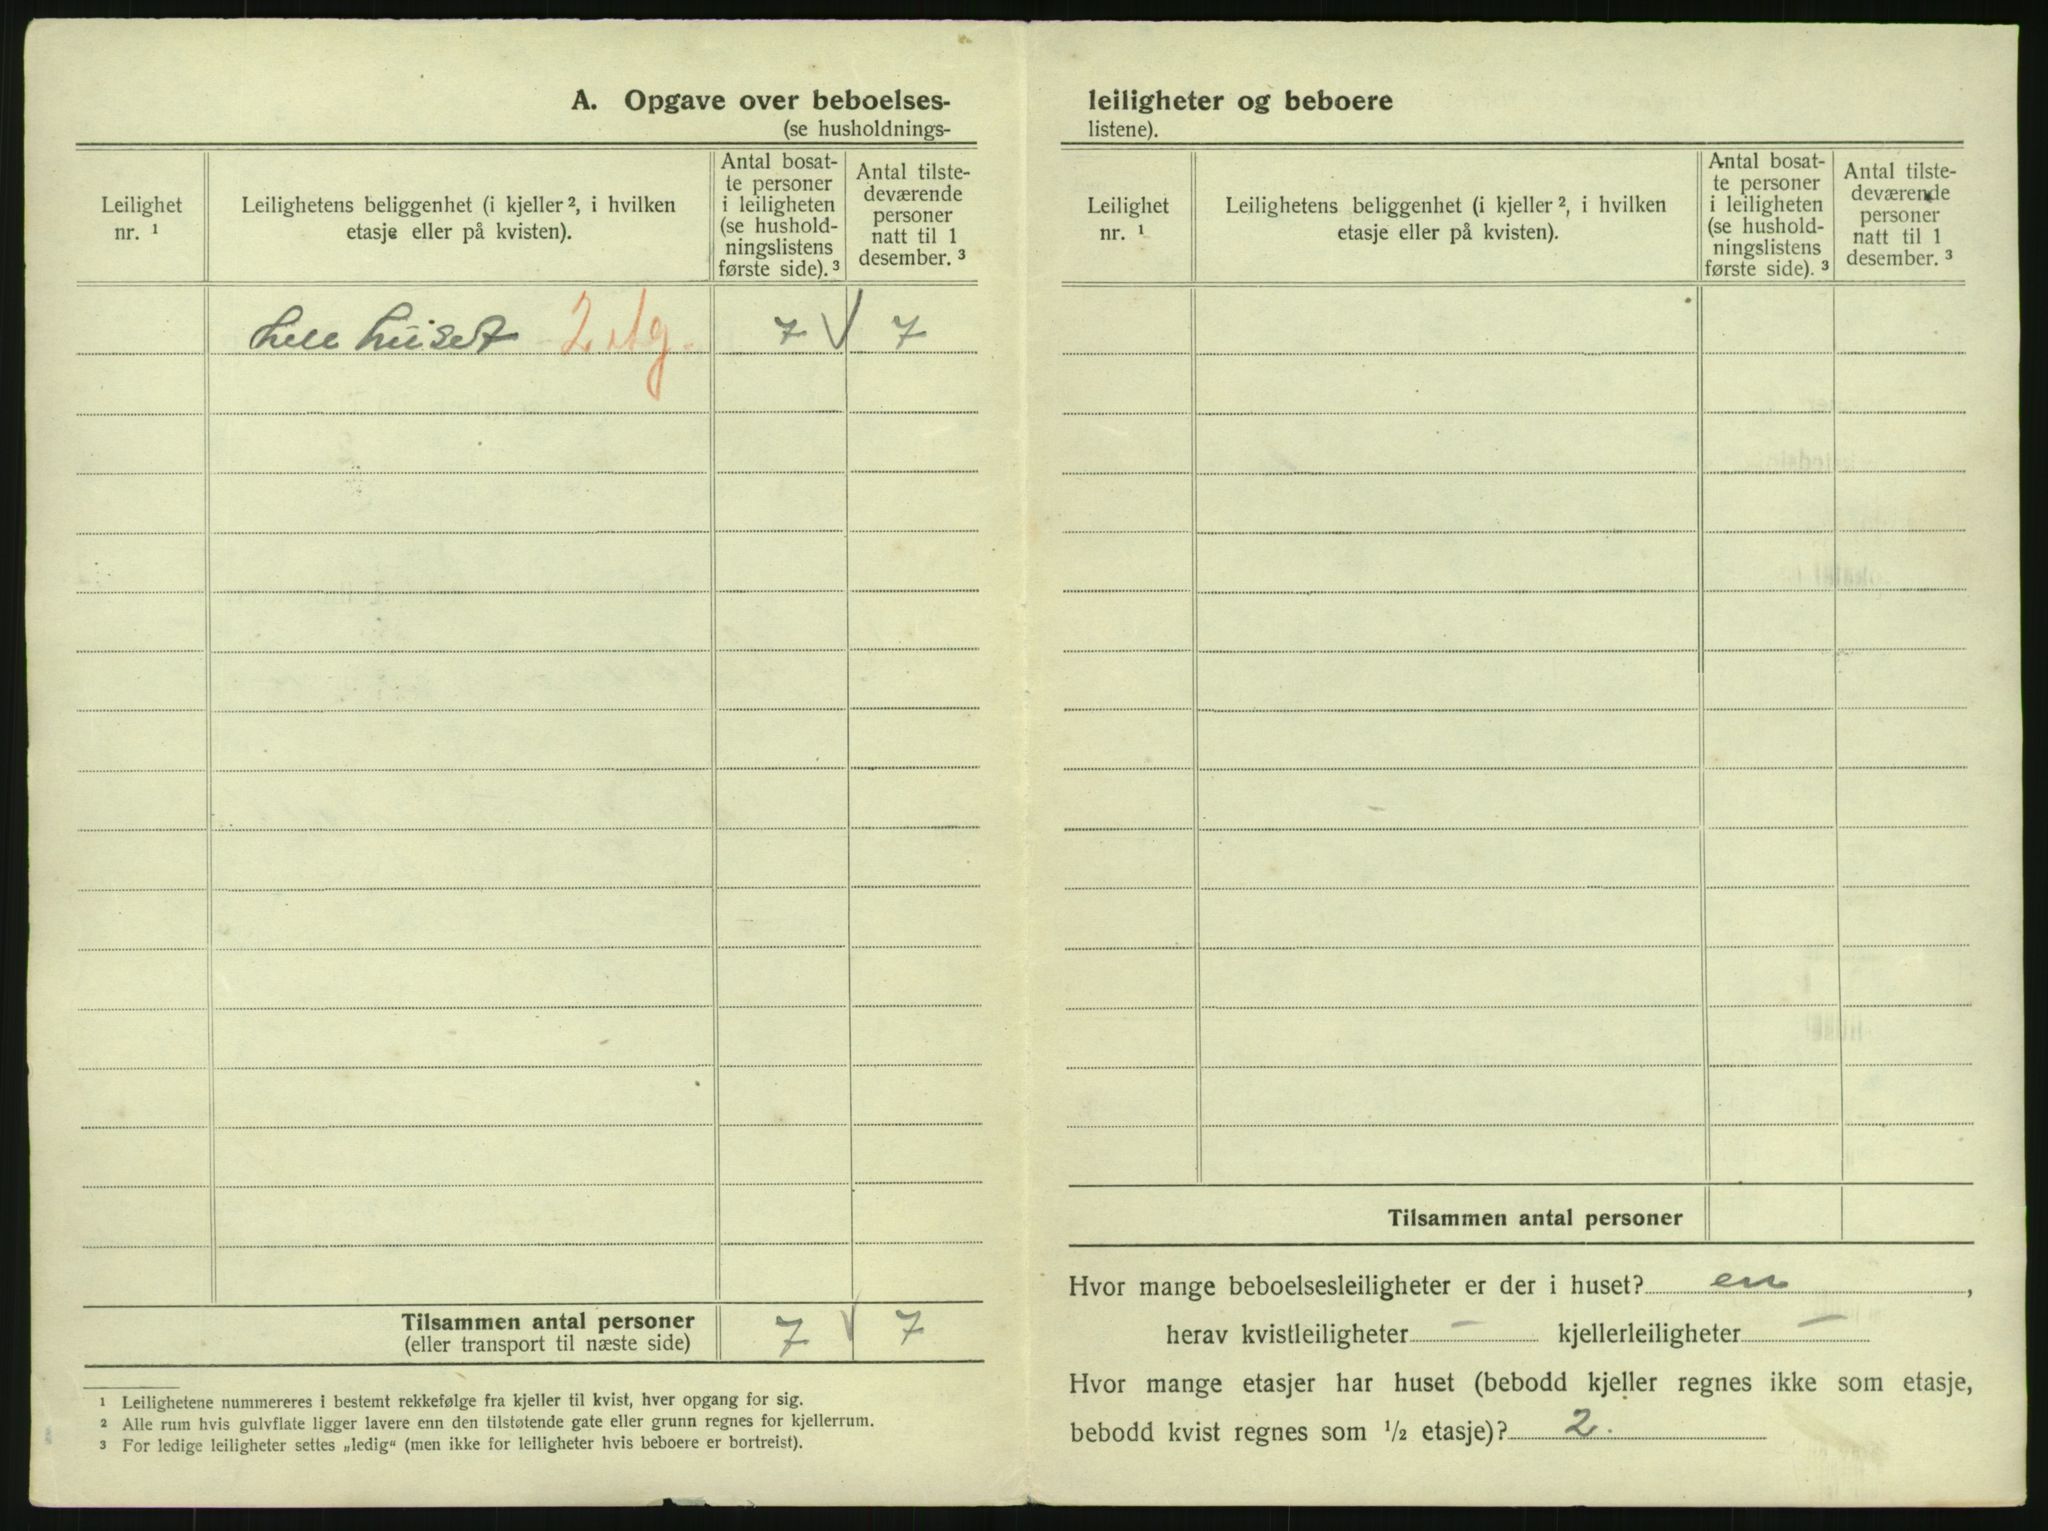 A. Opgave over beboelses-
(se husholdnings-
Leilighet
nr. ¹
Leilighetens beliggenhet (i kjeller ², i hvilken
etasje eller på kvisten).
Antal bosat-
te personer
i leiligheten
(se hushold-
ningslistens
første side). ³
Antal tilste-
deværende
personer
natt til 1
desember. ³
hele huset 2 etg. 7 7
Tilsammen antal personer
(eller transport til næste side)
7 7
¹ Leilighetene nummereres i bestemt rekkefølge fra kjeller til kvist, hver opgang for sig.
² Alle rum hvis gulvflate ligger lavere enn den tilstøtende gate eller grunn regnes for kjellerrum.
³ For ledige leiligheter settes „ledig“ (men ikke for leiligheter hvis beboere er bortreist).
leiligheter og beboere
listene).
Leilighet
nr. ¹
Leilighetens beliggenhet (i kjeller ², i hvilken
etasje eller på kvisten).
Antal bosat-
te personer
i leiligheten
(se hushold-
ningslistens
første side). ³
Antal tilste-
deværende
personer
natt til 1
desember. ³
Tilsammen antal personer
Hvor mange beboelsesleiligheter er der i huset? en,
herav kvistleiligheter — kjellerleiligheter —
Hvor mange etasjer har huset (bebodd kjeller regnes ikke som etasje,
bebodd kvist regnes som ½ etasje)? 2.